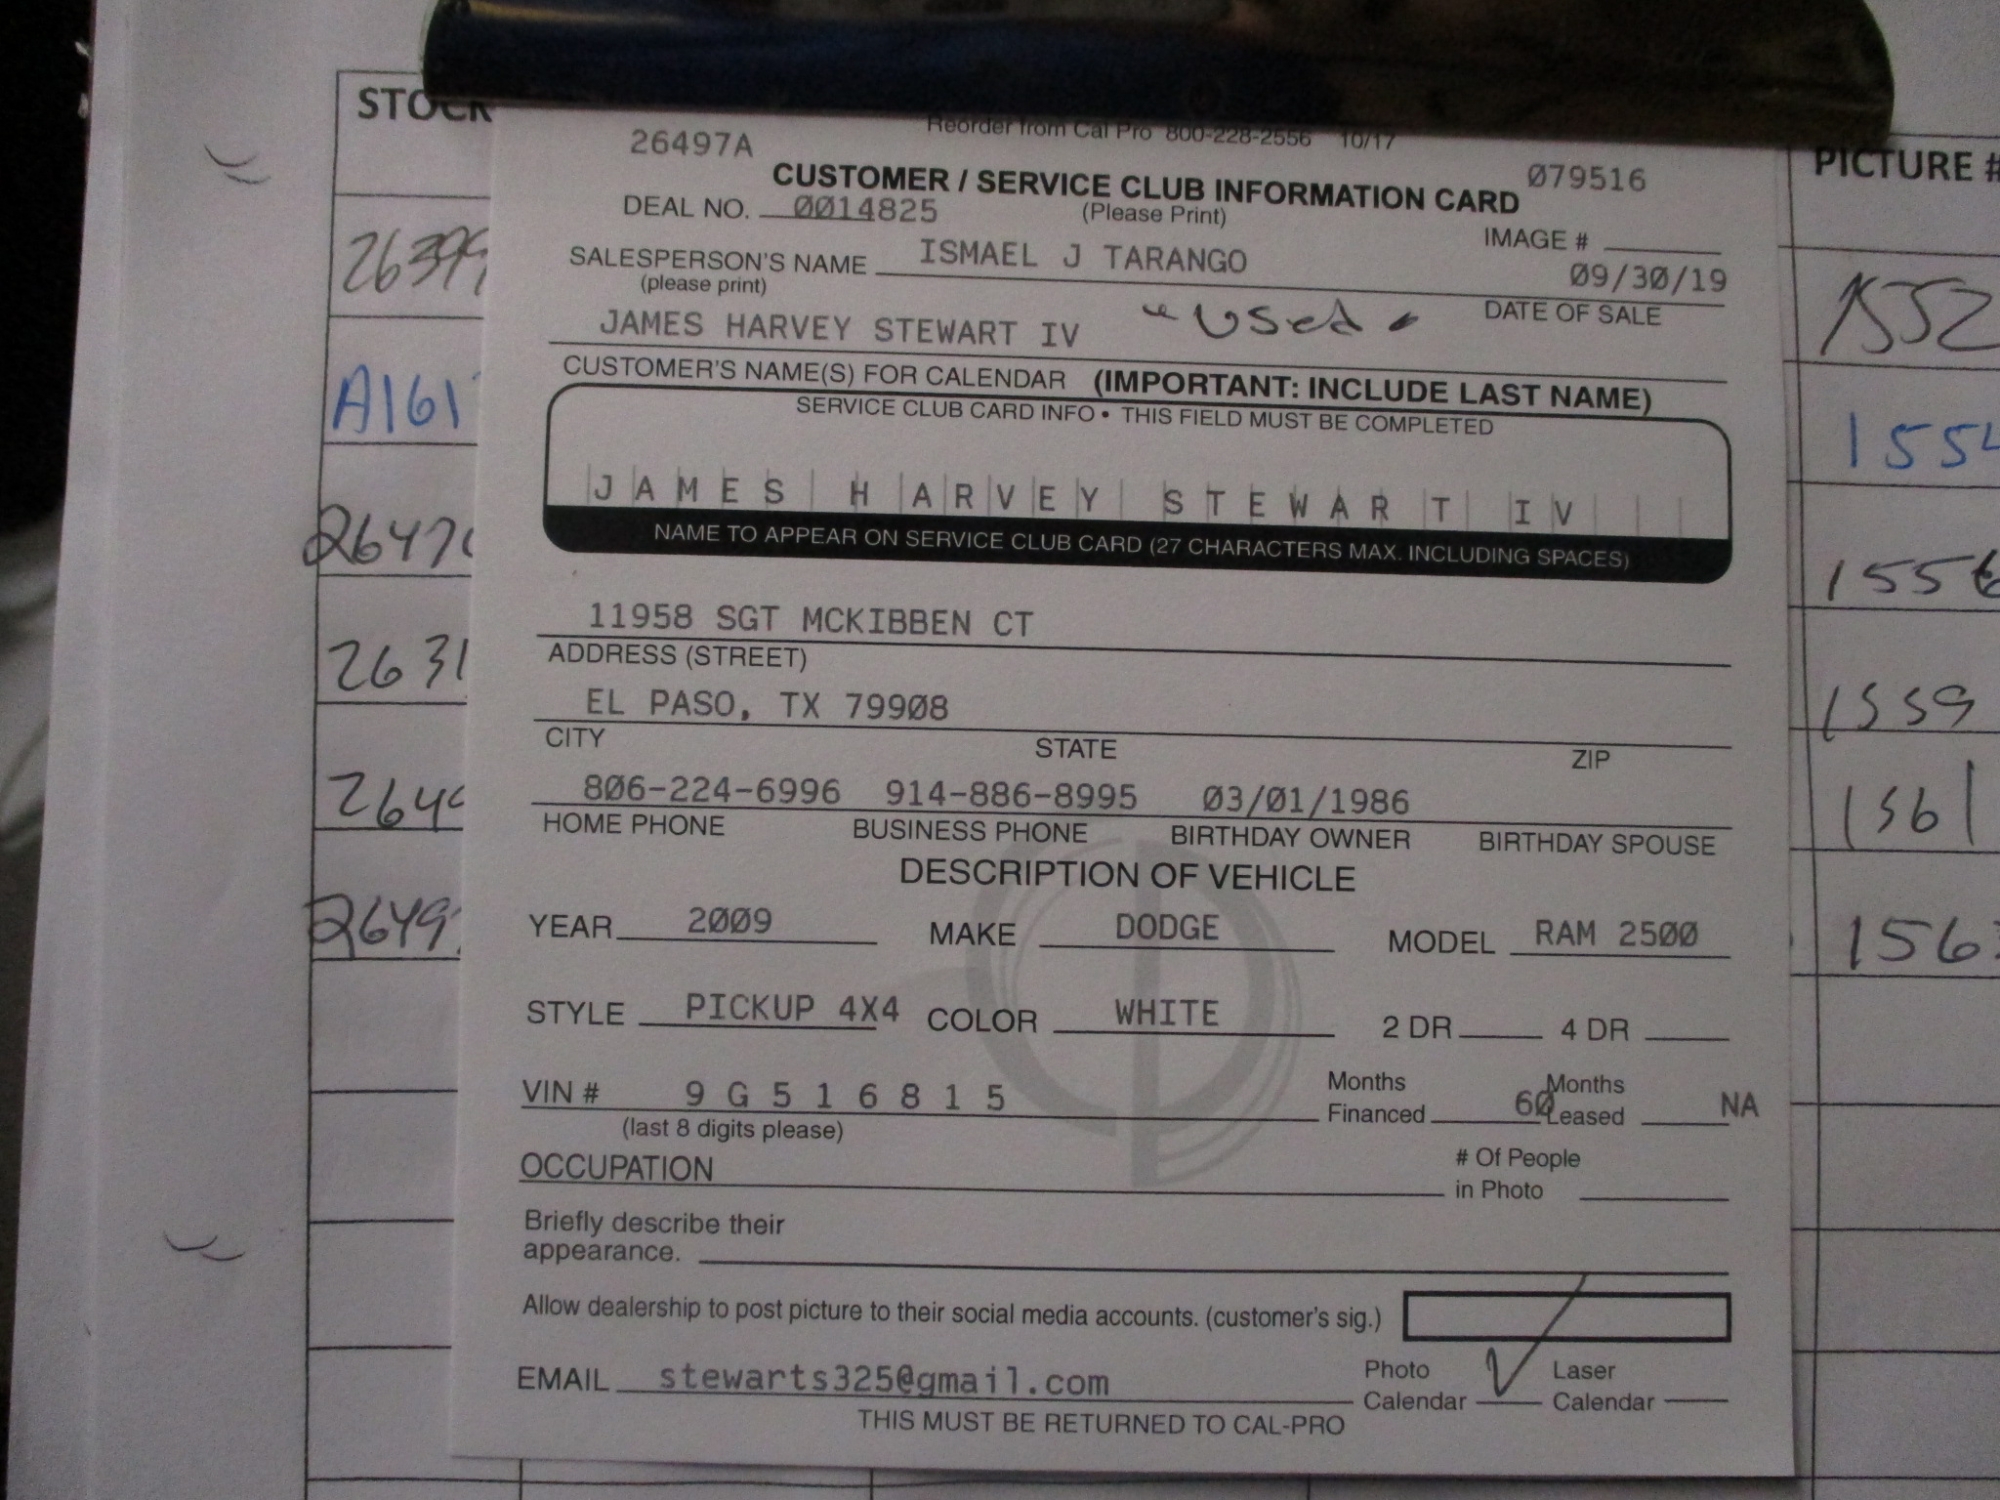 STOCK
PICTURE #
Reorder from Cal Pro 800-228-2556 10/17
26497A
079516
CUSTOMER / SERVICE CLUB INFORMATION CARD
DEAL NO. 0014825 (Please Print)
IMAGE #
SALESPERSON'S NAME ISMAEL J TARANGO
(please print)
09/30/19
DATE OF SALE
JAMES HARVEY STEWART IV "Used"
CUSTOMER'S NAME(S) FOR CALENDAR (IMPORTANT: INCLUDE LAST NAME)
SERVICE CLUB CARD INFO • THIS FIELD MUST BE COMPLETED
JAMES HARVEY STEWART IV
NAME TO APPEAR ON SERVICE CLUB CARD (27 CHARACTERS MAX. INCLUDING SPACES)
11958 SGT MCKIBBEN CT
ADDRESS (STREET)
EL PASO, TX 79908
CITY STATE ZIP
806-224-6996 914-886-8995 03/01/1986
HOME PHONE BUSINESS PHONE BIRTHDAY OWNER BIRTHDAY SPOUSE
DESCRIPTION OF VEHICLE
YEAR 2009 MAKE DODGE MODEL RAM 2500
STYLE PICKUP 4X4 COLOR WHITE 2 DR 4 DR
VIN # 9G516815 Months Financed 60 Months Leased NA
(last 8 digits please)
OCCUPATION # Of People in Photo
Briefly describe their
appearance.
Allow dealership to post picture to their social media accounts. (customer's sig.)
EMAIL stewarts325@gmail.com Photo Calendar Laser Calendar
THIS MUST BE RETURNED TO CAL-PRO
A161
2631
1552
1556
1559
1561